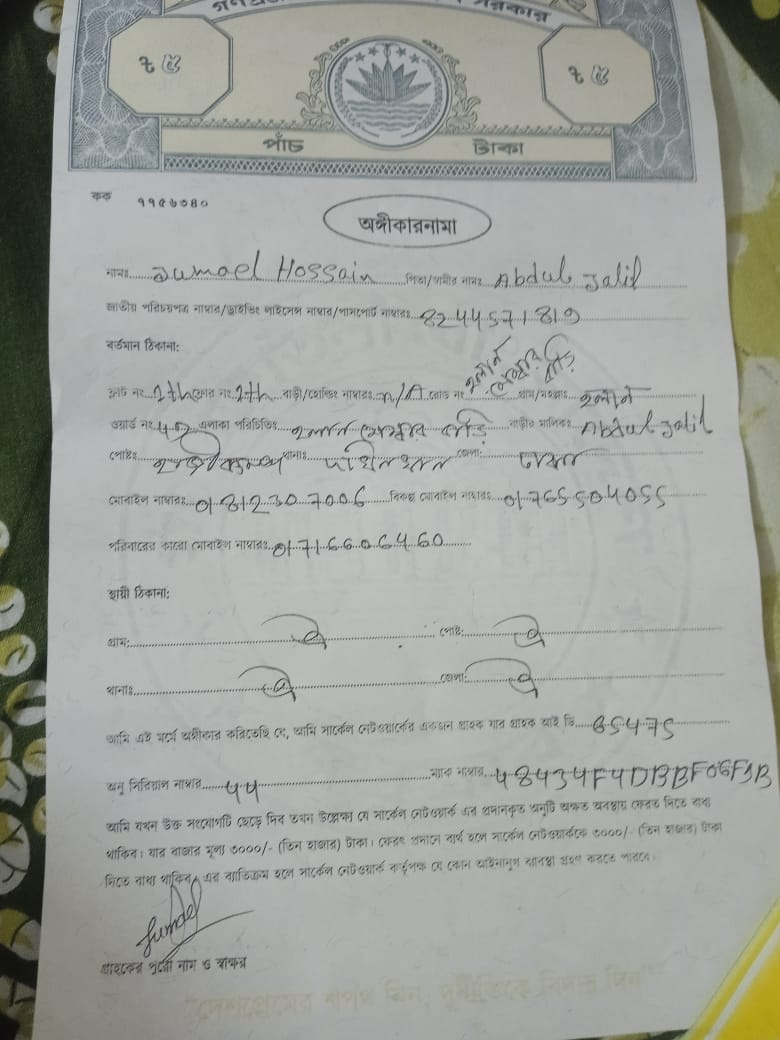 সরকার
৳ ৫
৳ ৫
পাঁচ টাকা
কক ৭৭৫৬৩৪০
অঙ্গীকারনামা
নামঃ Jumael Hossain পিতা/স্বামীর নামঃ Abdul Jalil
জাতীয় পরিচয়পত্র নাম্বার/ড্রাইভিং লাইসেন্স নাম্বার/পাসপোর্ট নাম্বারঃ 8244571819
বর্তমান ঠিকানা:
ফ্লাট নং 7th ফ্লোর নং 7th বাড়ী/হোল্ডিং নাম্বারঃ n/A রোড নং হলান মেম্বার বাড়ি গ্রাম/মহল্লাঃ হলান
ওয়ার্ড নং এলাকা পরিচিতিঃ হলান মেম্বার বাড়ি বাড়ীর মালিকঃ Abdul Jalil
পোষ্টঃ থানাঃ দক্ষিনখান জেলা: ঢাকা
মোবাইল নাম্বারঃ 01812307006 বিকল্প মোবাইল নাম্বারঃ 01765504055
পরিবারের কারো মোবাইল নাম্বারঃ 01716606460
স্থায়ী ঠিকানা:
গ্রাম: ঐ পোষ্ট: ঐ
থানাঃ ঐ জেলা: ঐ
আমি এই মর্মে অঙ্গীকার করিতেছি যে, আমি সার্কেল নেটওয়ার্কের একজন গ্রাহক যার গ্রাহক আই ডি 65475
অনু সিরিয়াল নাম্বার 44 ম্যাক নাম্বার 48434F4DBBF06F9B
আমি যখন উক্ত সংযোগটি ছেড়ে দিব তখন উল্লেক্ষ্য যে সার্কেল নেটওয়ার্ক এর প্রদানকৃত অনুটি অক্ষত অবস্থায় ফেরত দিতে বাধ্য
থাকিব। যার বাজার মূল্য ৩০০০/- (তিন হাজার) টাকা। ফেরৎ প্রদানে ব্যর্থ হলে সার্কেল নেটওয়ার্ককে ৩০০০/- (তিন হাজার) টাকা
দিতে বাধ্য থাকিব। এর ব্যতিক্রম হলে সার্কেল নেটওয়ার্ক কর্তৃপক্ষ যে কোন আইনানুগ ব্যবস্থা গ্রহণ করতে পারবে।
Jumael
গ্রাহকের পুরো নাম ও স্বাক্ষর
"দেশপ্রেমের শপথ নিন, দুর্নীতিকে বিদায় দিন"